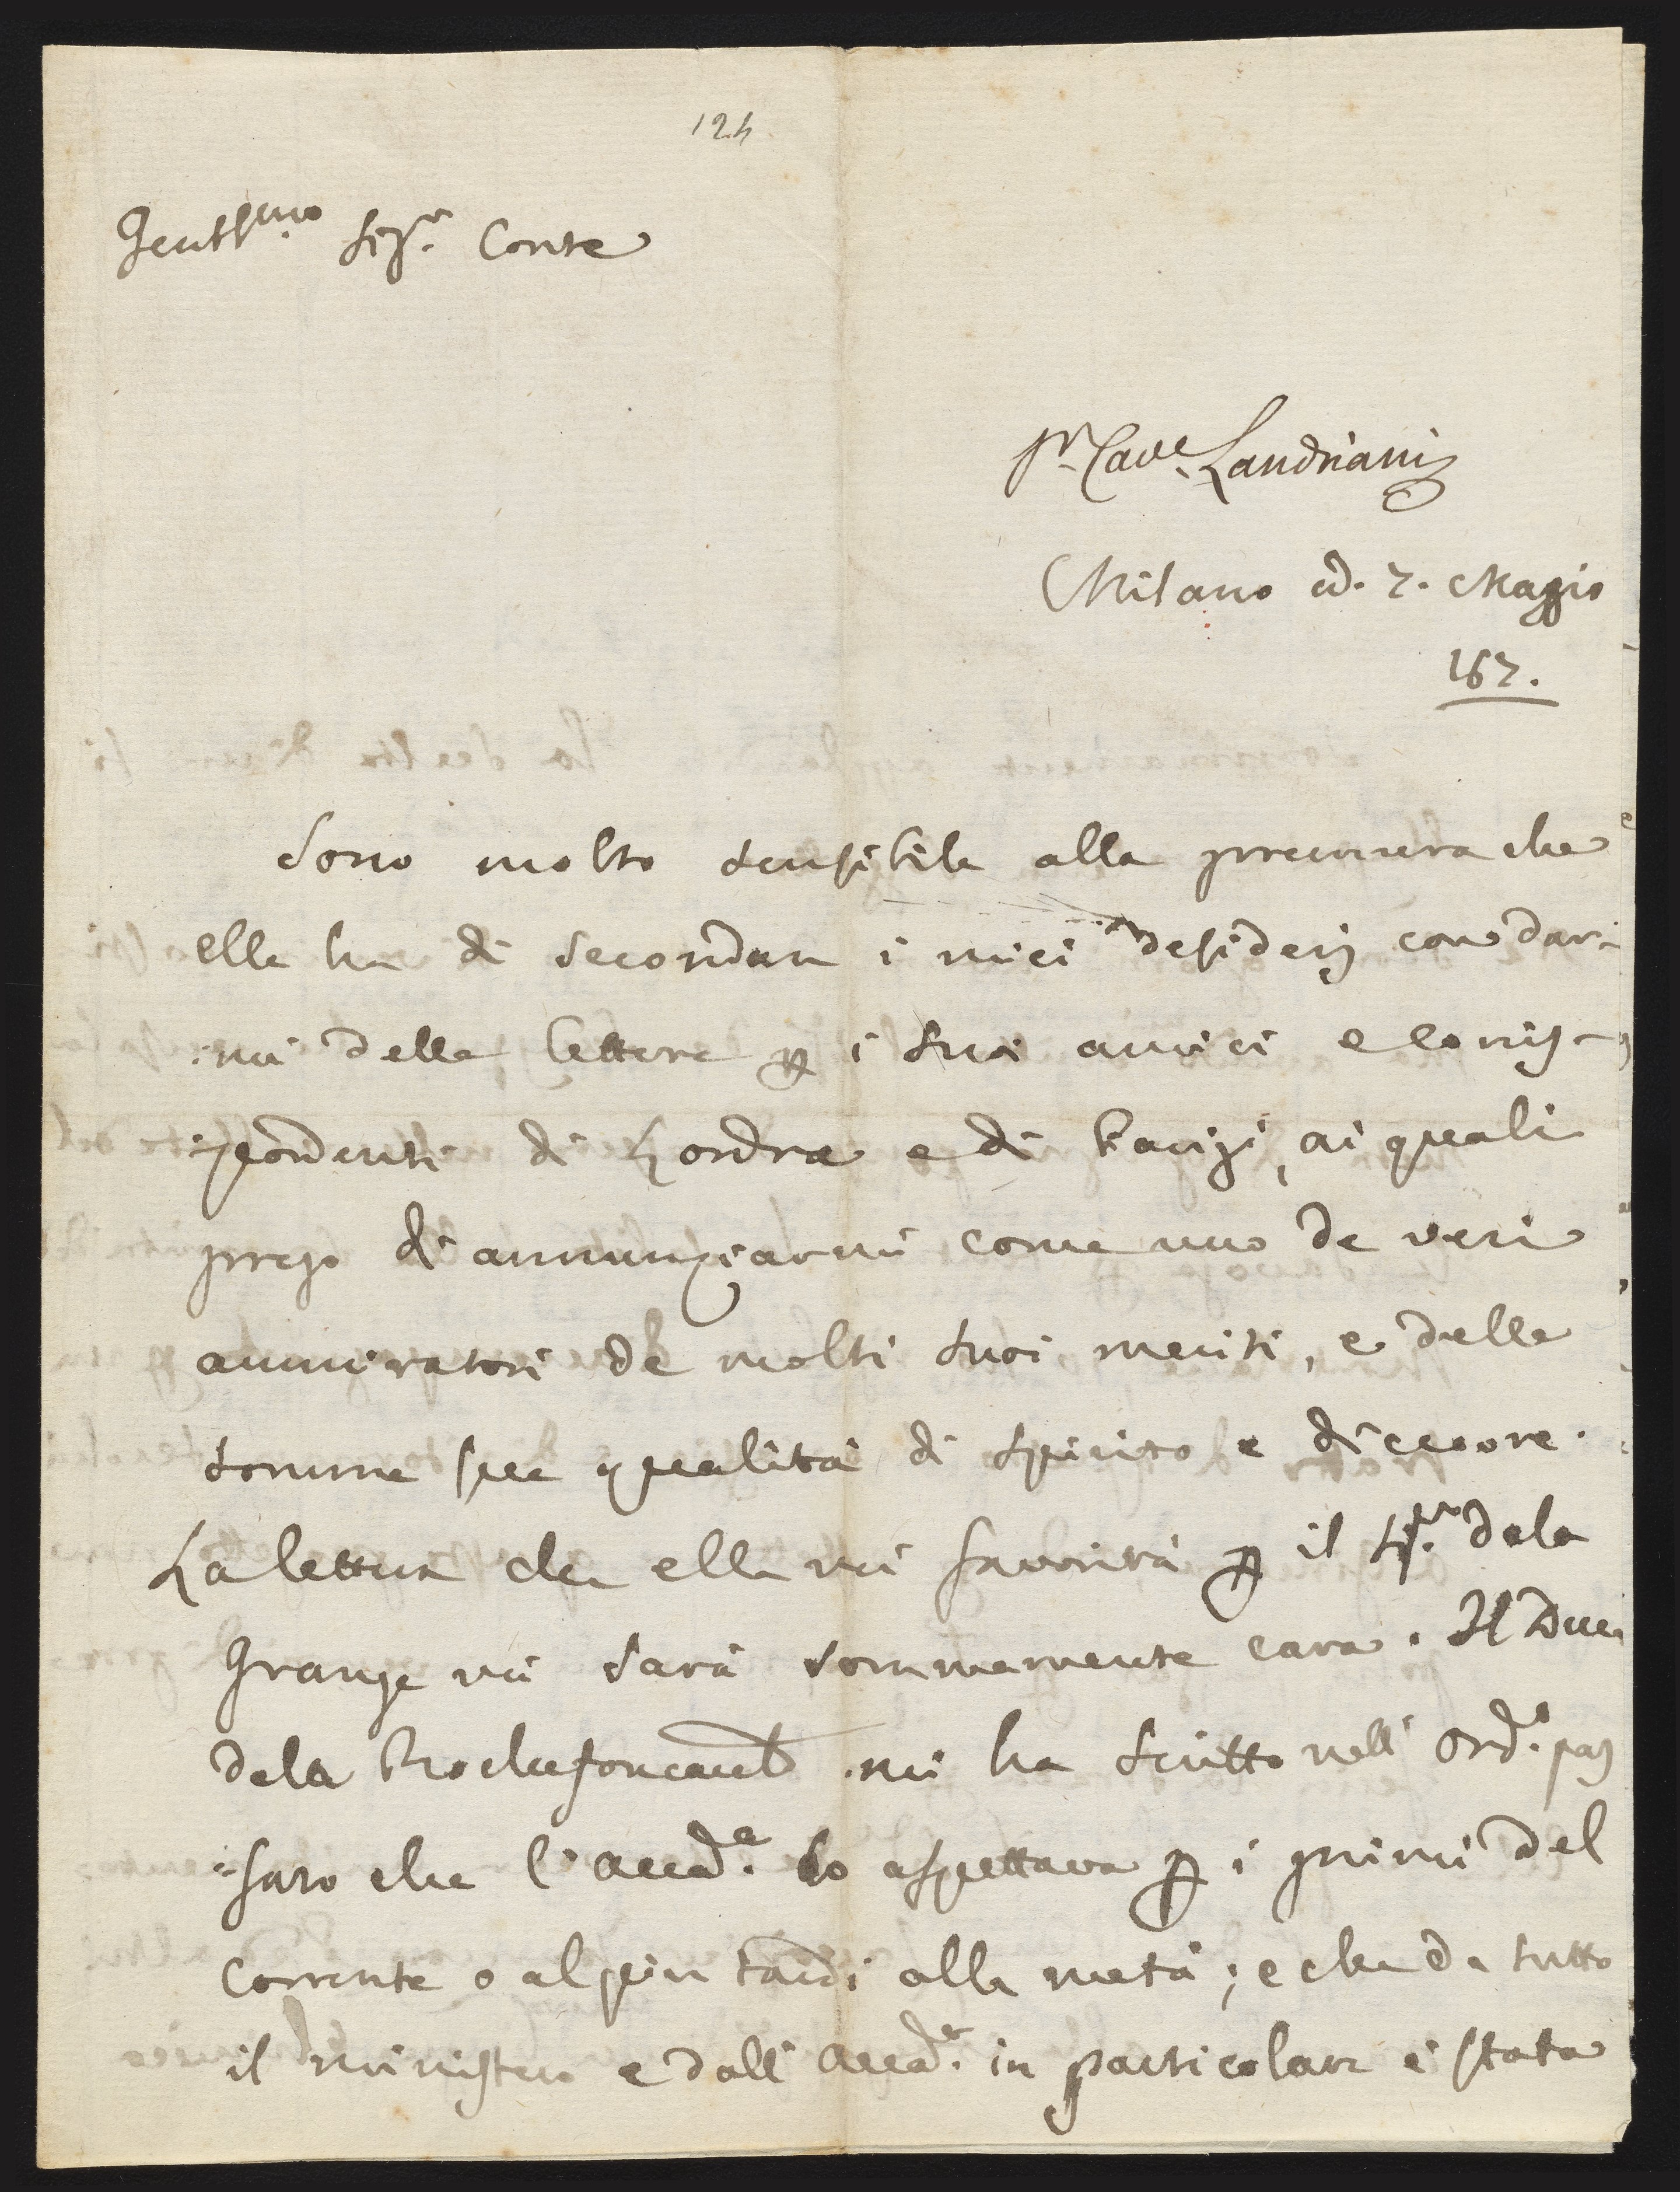 124
Gentmo. Sigr. Conte
Sr. Cave. Landriani
Milano ad. 7. Maggio
167.
Sono molto sensibile alla premura che
ella ha di secondare i miei desiderj con dar-
mi delle lettere p i suoi amici e corris-
pondenti di Londra e di Parigi, ai quali
prego di annunziarmi come uno de veri
ammiratori de molti suoi meriti, e delle
somme sue qualità di spirito e di cuore.
La lettera che ella mi favorirà p il Sigr. de la
Grange mi sarà sommamente cara. Il Duca
de la Rochefoucault mi ha scritto nell' ord.o pas-
sato che l'Accad.a lo aspettava p i primi del
corrente o al più tardi alla metà; e che da tutto
il ministero e dall' Accad.a in particolare è stata